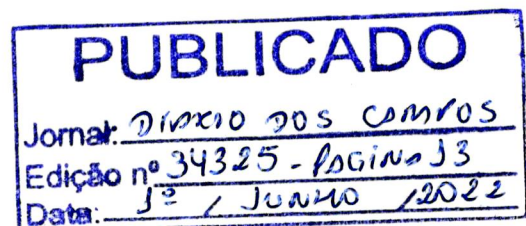 PUBLICADO
Jornal: DIÁRIO DOS CAMPOS
Edição nº 34325 - PÁGINA 13
Data: 1º / JUNHO / 2022